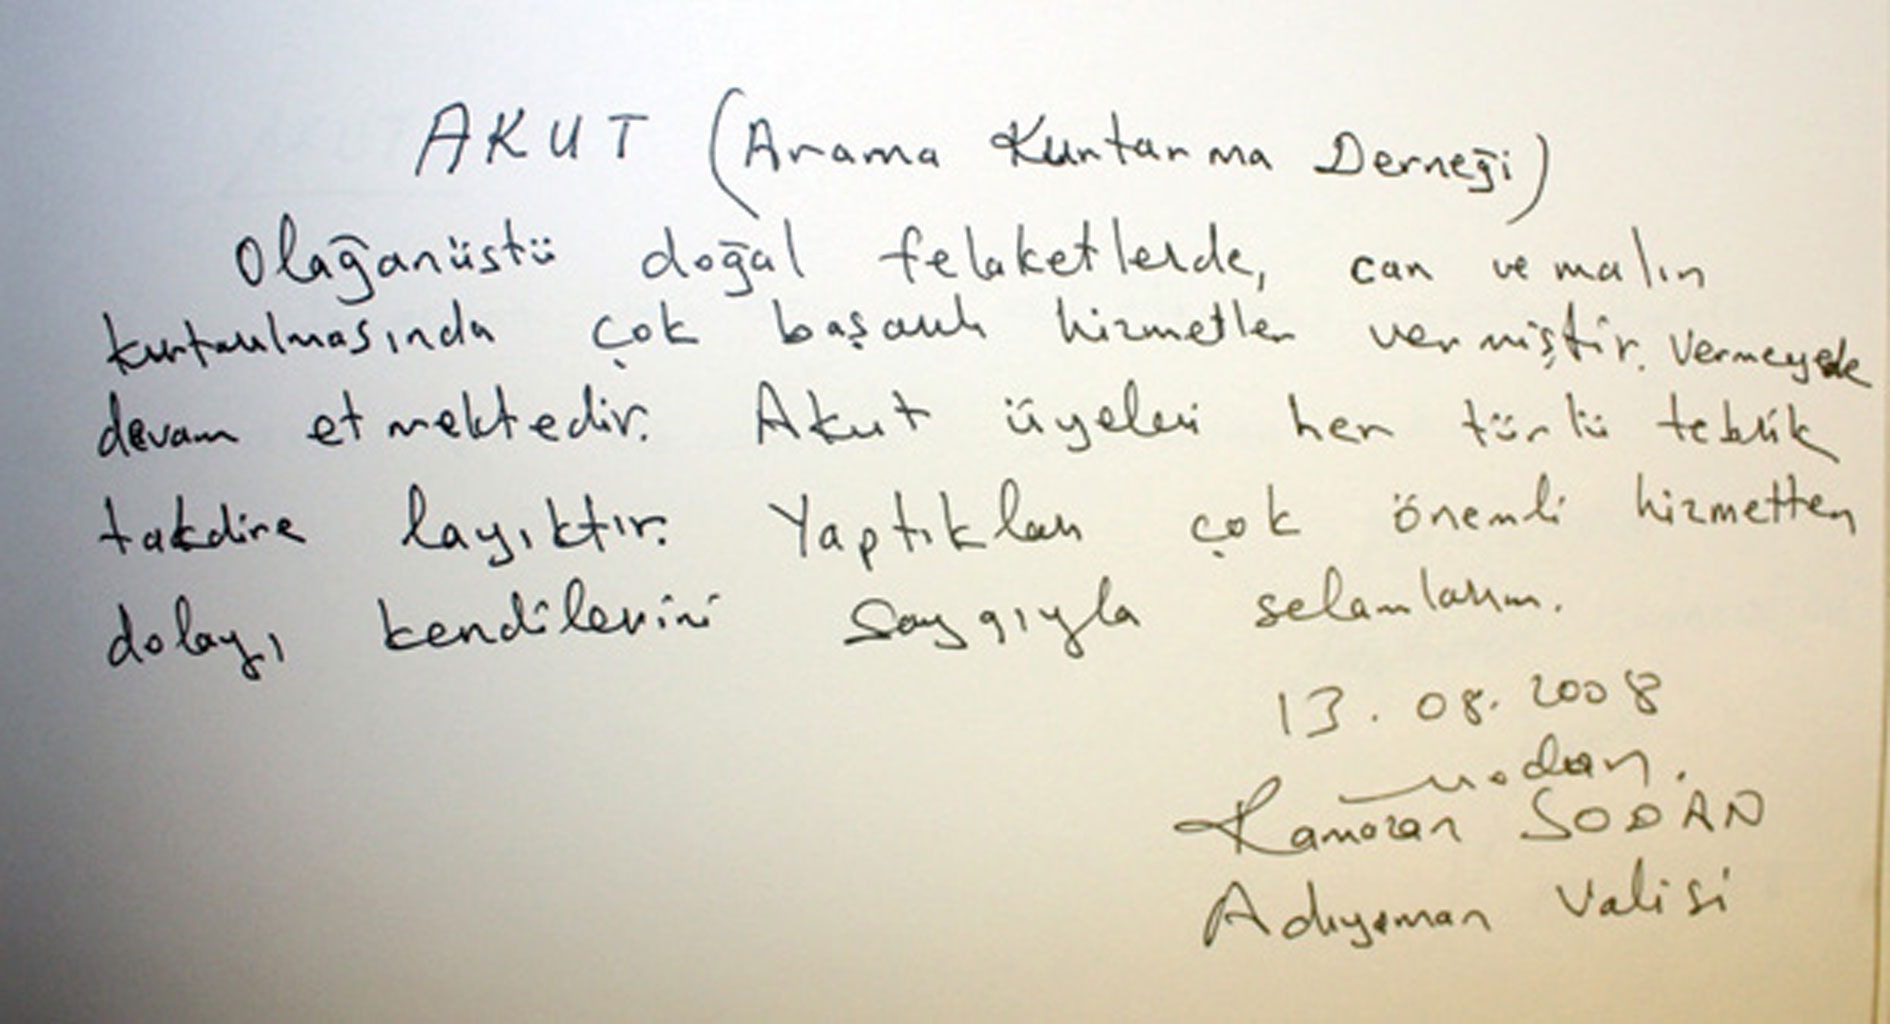 AKUT (Arama Kurtarma Derneği)
Olağanüstü doğal felaketlerde, can ve malın
kurtarılmasında çok başarılı hizmetler vermiştir. Vermeyede
devam etmektedir. Akut üyeleri her türlü tebrik
takdire layıktır. Yaptıkları çok önemli hizmetten
dolayı kendilerini saygıyla selamlarım.
13.08.2008
Ramazan SODAN
Adıyaman Valisi